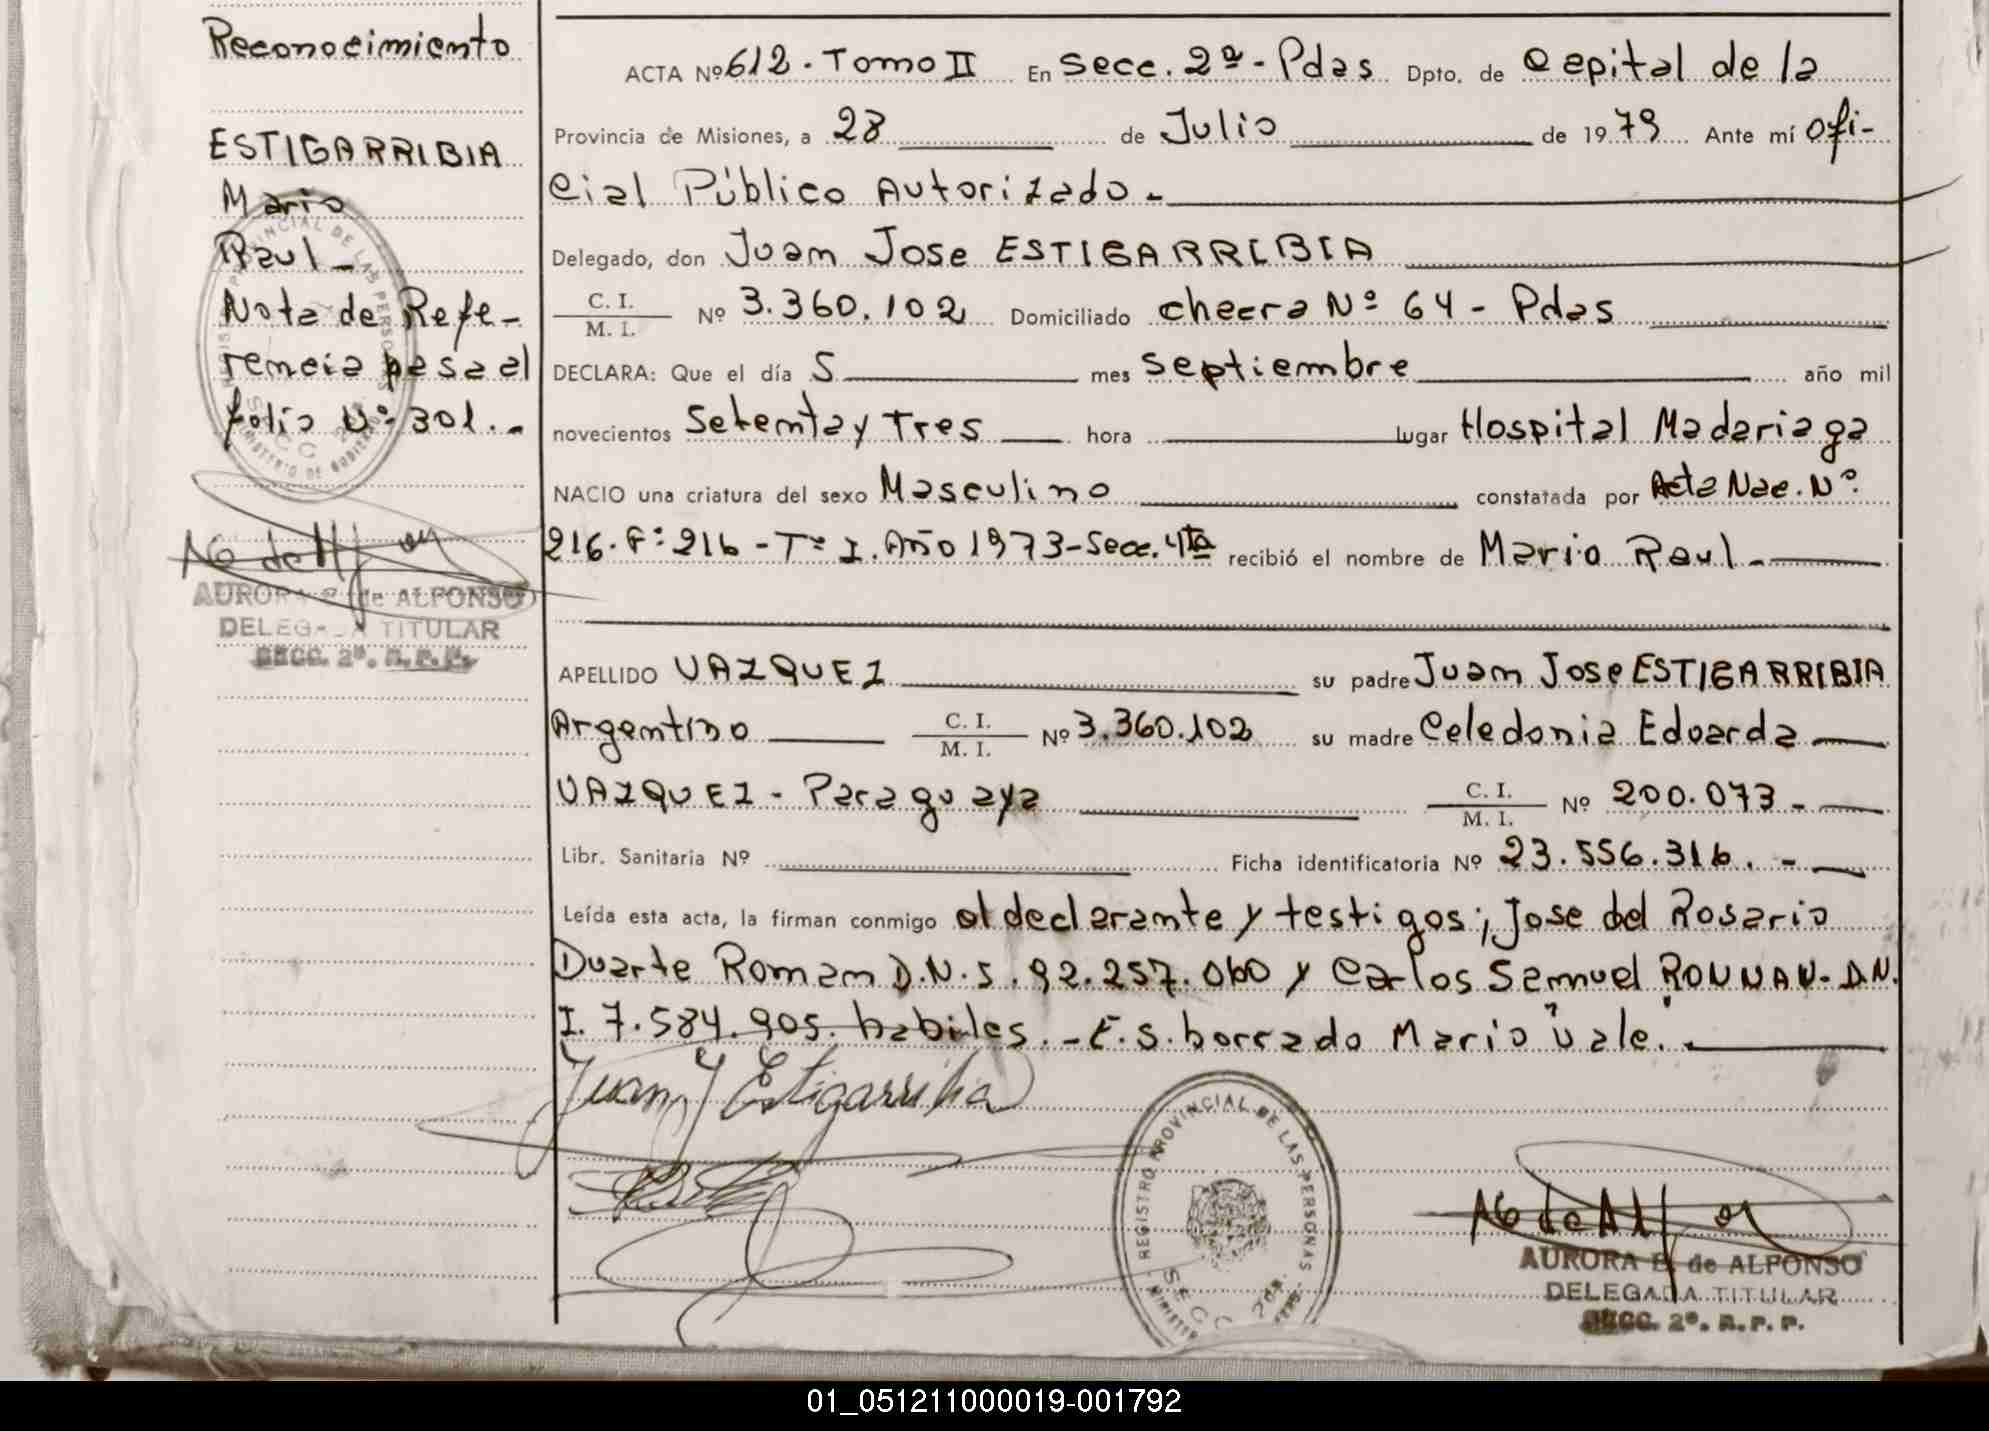 Reconocimiento
ESTIGARRIBIA
Mario
Raul -
Nota de Refe-
rencia pasa al
folio Nº 301.-
AURORA B. de ALFONSO
DELEGADA TITULAR
SECC. 2ª. R. P. P.
ACTA Nº 612 - Tomo II En Secc. 2ª - Pdas Dpto. de Capital de la
Provincia de Misiones, a 28 de Julio de 1979 Ante mí Ofi-
cial Público Autorizado -
Delegado, don Juan Jose ESTIGARRIBIA
C. I. / M. I. Nº 3.360.102 Domiciliado checra Nº 64 - Pdas
DECLARA: Que el día 5 mes septiembre año mil
novecientos Setenta y Tres hora lugar Hospital Madariaga
NACIO una criatura del sexo Masculino constatada por Acta Nac. Nº
216. Fº 216 - Tº I. Año 1973 - Secc. 4ta recibió el nombre de Mario Raul -
APELLIDO VAZQUEZ su padre Juan Jose ESTIGARRIBIA
Argentino C. I. / M. I. Nº 3.360.102 su madre Celedonia Eduarda
VAZQUEZ - Paraguaya C. I. / M. I. Nº 200.073 -
Libr. Sanitaria Nº Ficha identificatoria Nº 23.556.316. -
Leída esta acta, la firman conmigo el declarante y testigos; Jose del Rosario
Duarte Roman D.N.I. 92.257.060 y Carlos Samuel D.N.
I. 7.584.905. habiles. - E.S. borrado Mario "vale". -
Juan J Estigarribia
REGISTRO PROVINCIAL DE LAS PERSONAS
SECC 2da.
AURORA B. de ALFONSO
DELEGADA TITULAR
SECC. 2ª. R. P. P.
01_051211000019-001792